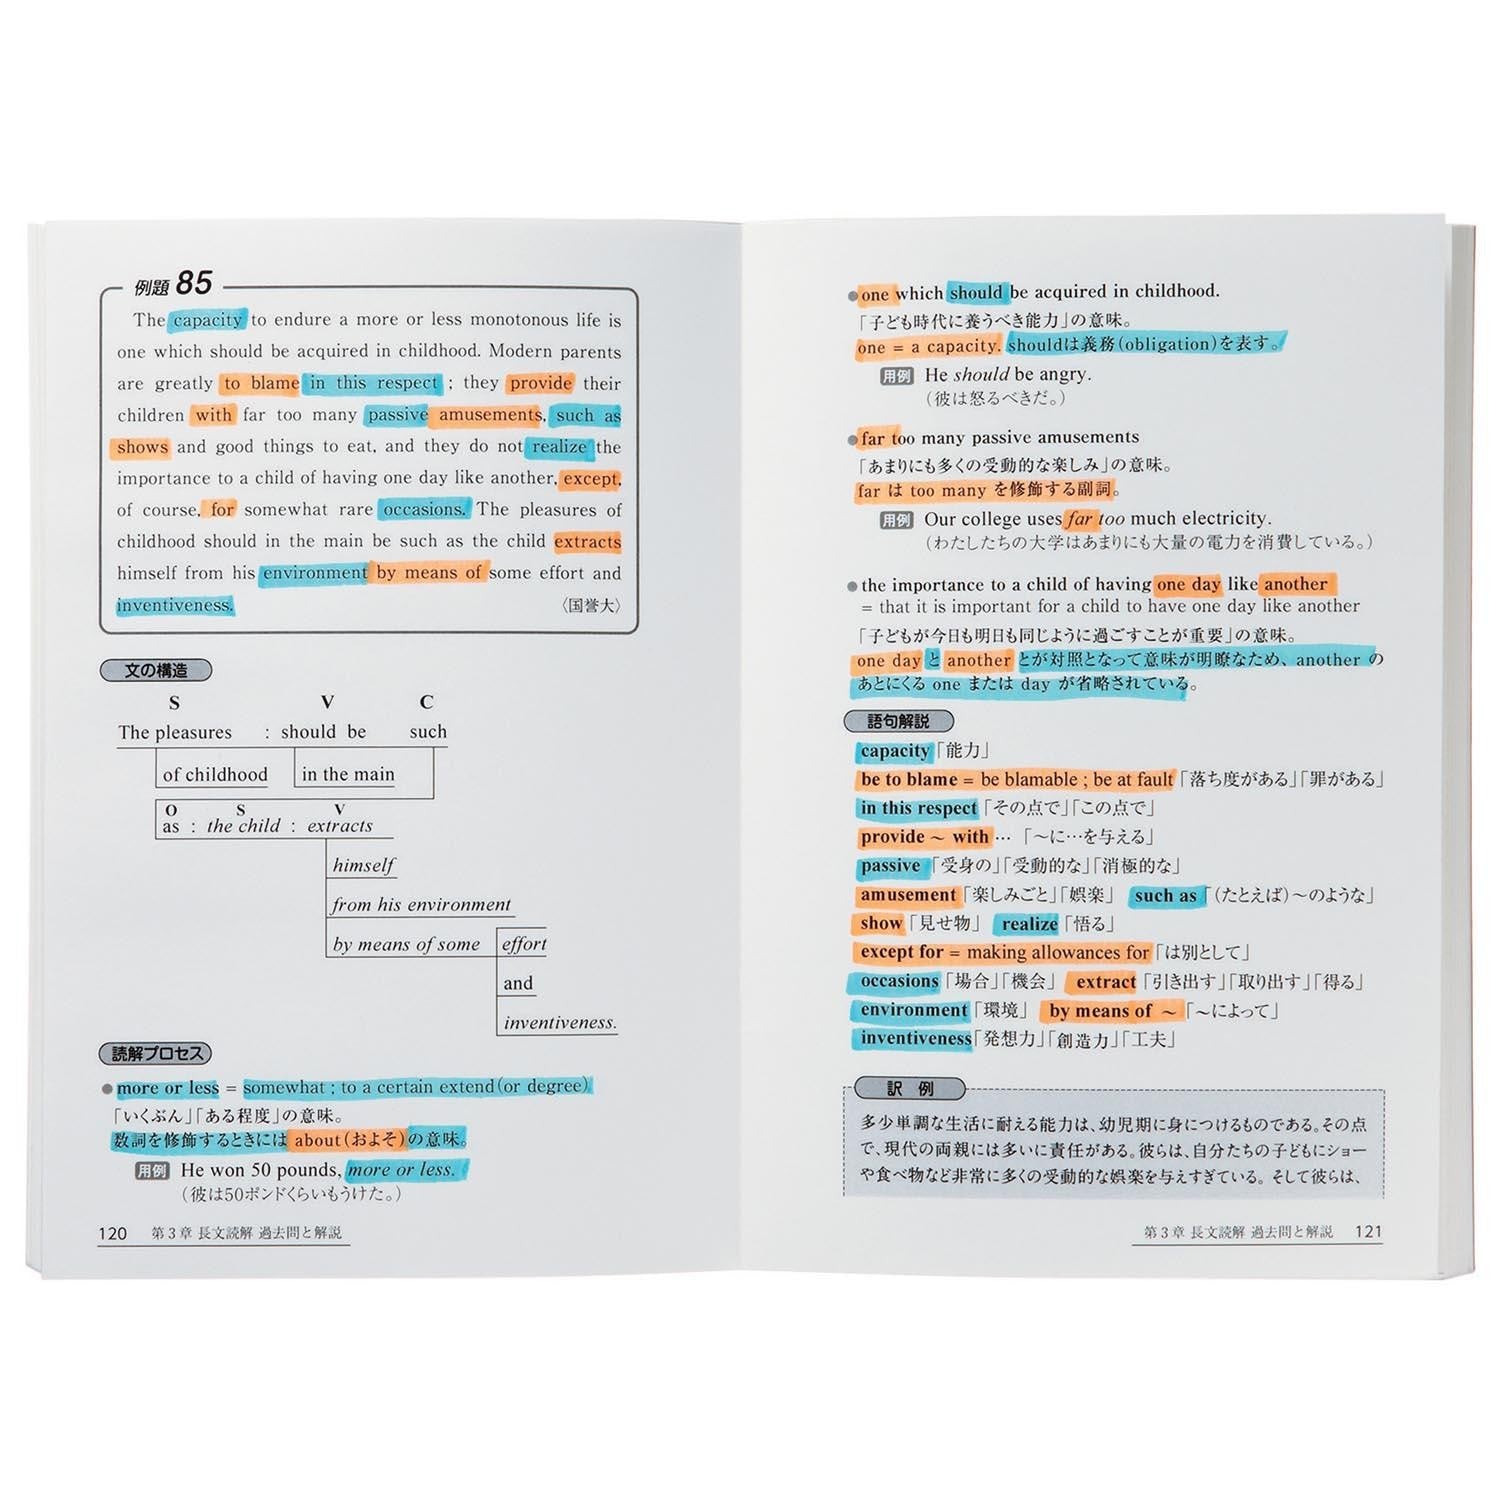 例題 85
The capacity to endure a more or less monotonous life is
one which should be acquired in childhood. Modern parents
are greatly to blame in this respect ; they provide their
children with far too many passive amusements, such as
shows and good things to eat, and they do not realize the
importance to a child of having one day like another, except,
of course, for somewhat rare occasions. The pleasures of
childhood should in the main be such as the child extracts
himself from his environment by means of some effort and
inventiveness.
〈国誉大〉
文の構造
S V C
The pleasures : should be such
of childhood in the main
O S V
as : the child : extracts
himself
from his environment
by means of some effort
and
inventiveness.
読解プロセス
●more or less = somewhat ; to a certain extend (or degree)
「いくぶん」「ある程度」の意味。
数詞を修飾するときには about (およそ) の意味。
用例 He won 50 pounds, more or less.
(彼は50ポンドくらいもうけた。)
120 第3章 長文読解 過去問と解説
●one which should be acquired in childhood.
「子ども時代に養うべき能力」の意味。
one = a capacity. shouldは義務(obligation)を表す。
用例 He should be angry.
(彼は怒るべきだ。)
●far too many passive amusements
「あまりにも多くの受動的な楽しみ」の意味。
far は too many を修飾する副詞。
用例 Our college uses far too much electricity.
(わたしたちの大学はあまりにも大量の電力を消費している。)
●the importance to a child of having one day like another
= that it is important for a child to have one day like another
「子どもが今日も明日も同じように過ごすことが重要」の意味。
one day と another とが対照となって意味が明瞭なため、another の
あとにくる one または day が省略されている。
語句解説
capacity「能力」
be to blame = be blamable ; be at fault「落ち度がある」「罪がある」
in this respect「その点で」「この点で」
provide ～ with … 「～に…を与える」
passive「受身の」「受動的な」「消極的な」
amusement「楽しみごと」「娯楽」 such as「(たとえば)～のような」
show「見せ物」 realize「悟る」
except for = making allowances for「は別として」
occasions「場合」「機会」 extract「引き出す」「取り出す」「得る」
environment「環境」 by means of ～「～によって」
inventiveness「発想力」「創造力」「工夫」
訳 例
多少単調な生活に耐える能力は、幼児期に身につけるものである。その点
で、現代の両親には多いに責任がある。彼らは、自分たちの子どもにショー
や食べ物など非常に多くの受動的な娯楽を与えすぎている。そして彼らは、
第3章 長文読解 過去問と解説 121